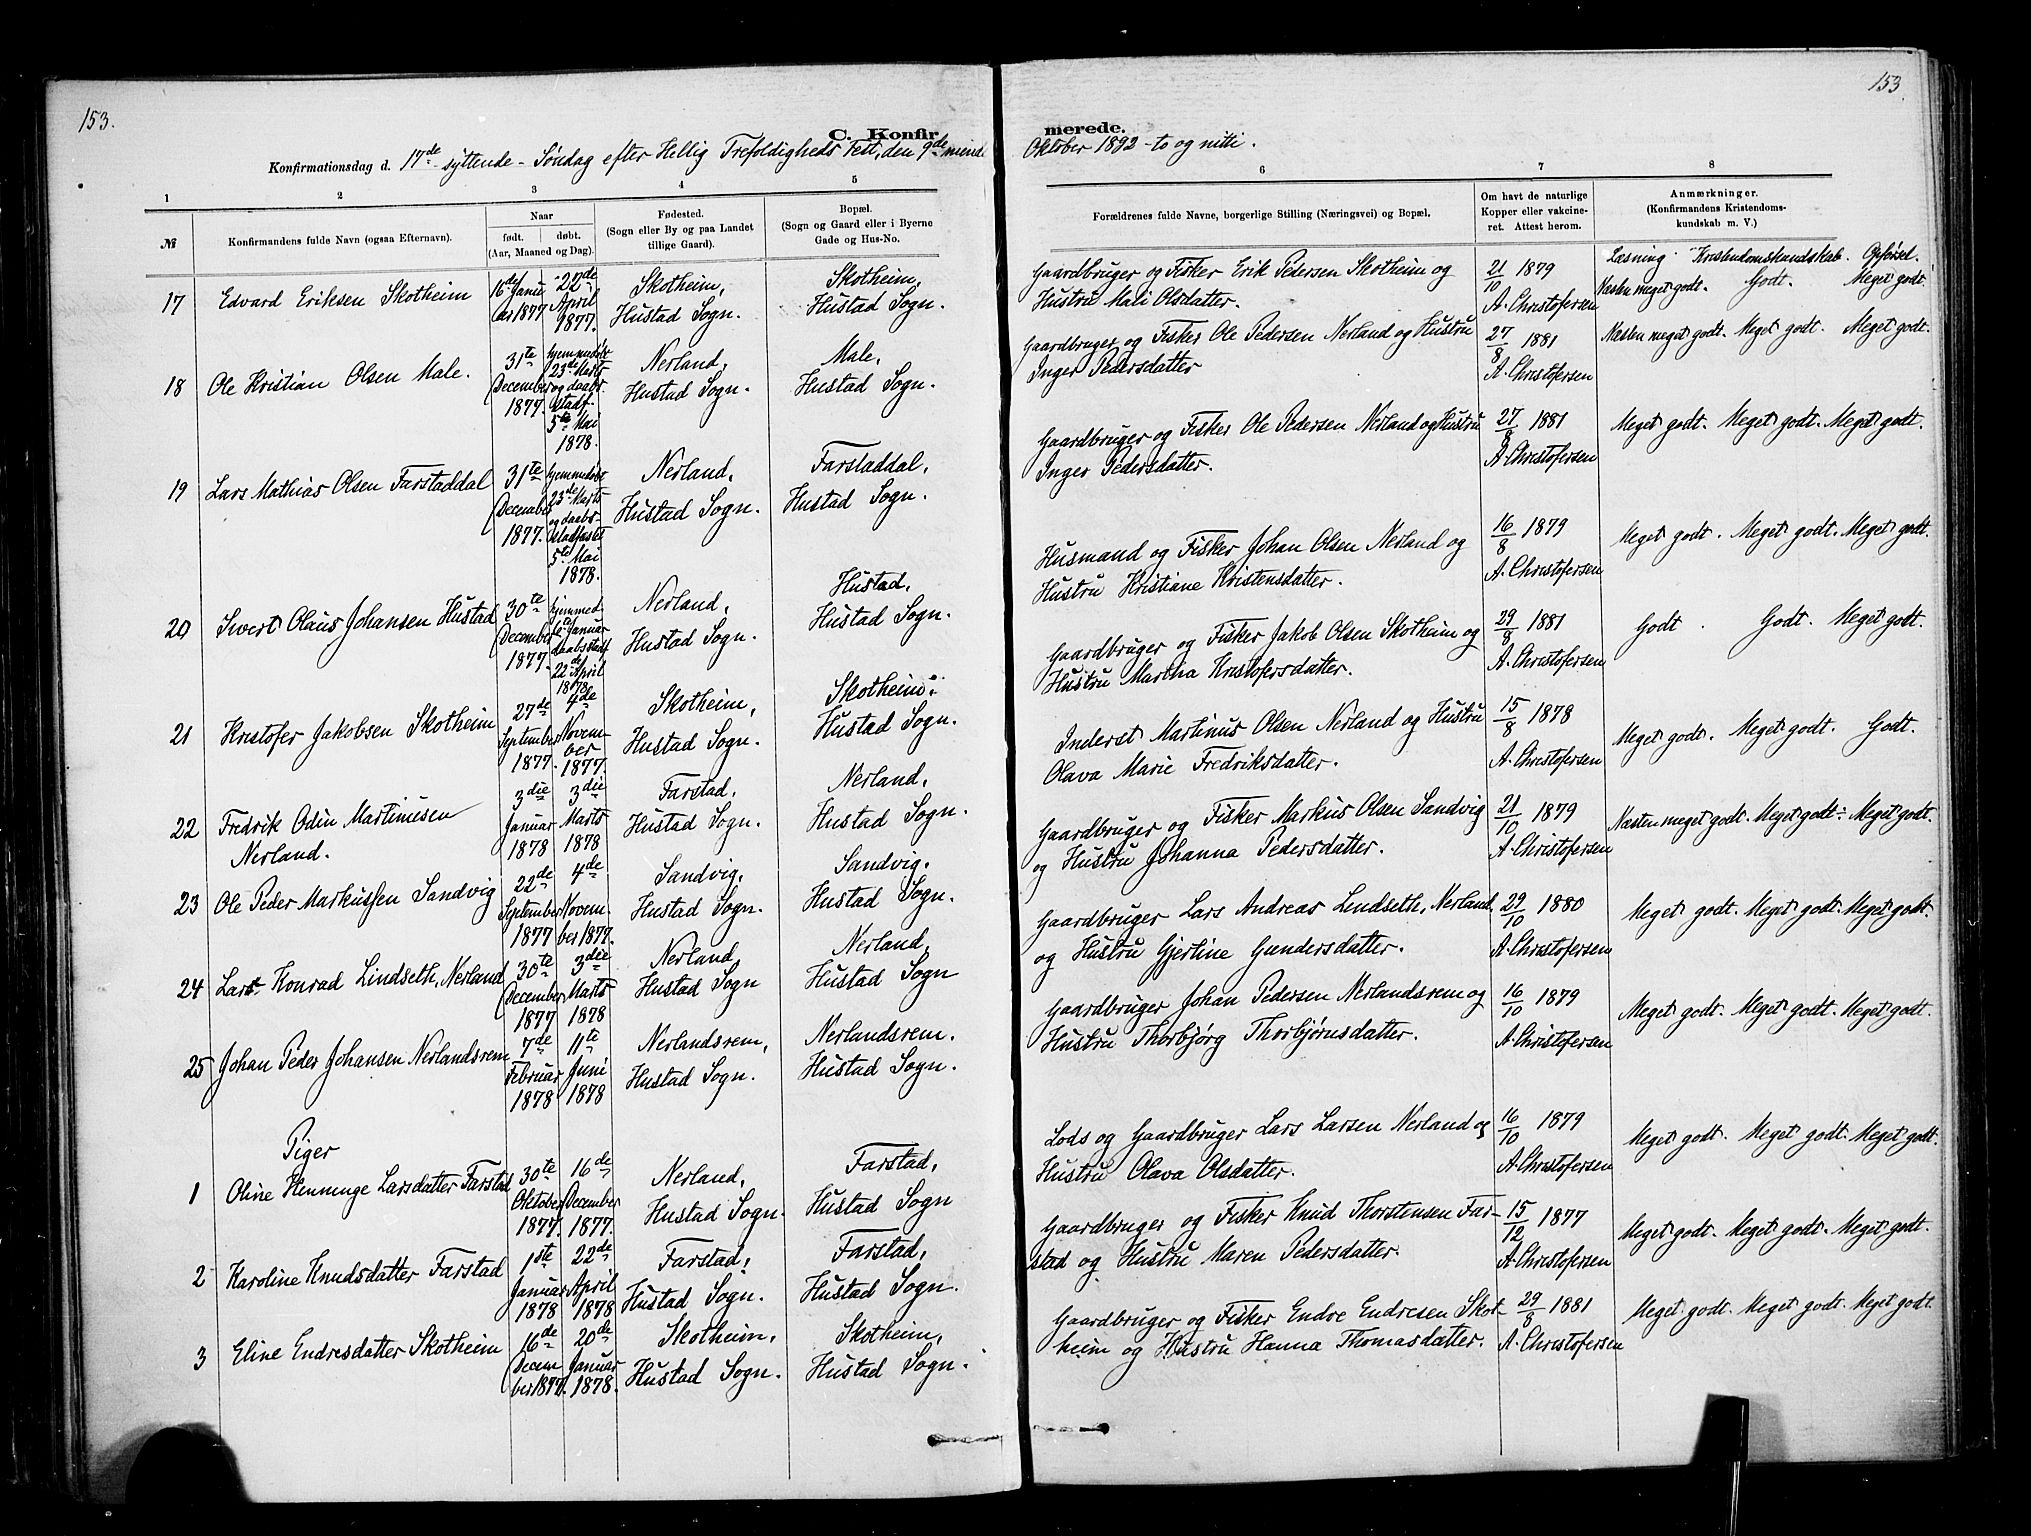 153.
153
C. Konfir
merede.
Konfirmationsdag d. 17de - syttende - Søndag efter Hellig Trefoldigheds Fest, den 9de niende
Oktober 1892 - to og nitti.
1 2 3 4 5
6 7 8
№
Konfirmandens fulde Navn (ogsaa Efternavn).
Naar
født. døbt.
(Aar, Maaned og Dag).
Fødested.
(Sogn eller By og paa Landet
tillige Gaard).
Bopæl.
(Sogn og Gaard eller i Byerne
Gade og Hus-No.
Forældrenes fulde Navne, borgerlige Stilling (Næringsvei) og Bopæl.
Om havt de naturlige
Kopper eller vakcine-
ret. Attest herom.
Anmærkninger.
(Konfirmandens Kristendoms-
kundskab m. V.)
Læsning. Kristendomskundskab. Opførsel.
17 Edvard Eriksen Skotheim
16de Janu
ar 1877
22de
April
1877.
Skotheim,
Hustad Sogn.
Skotheim,
Hustad Sogn.
Gaardbruger og Fisker Erik Pedersen Skotheim og
Hustru Mali Olsdatter.
21/10 1879
A. Christofersen
Næsten meget godt. Godt. Meget godt.
18 Ole Kristian Olsen Male.
31te
December
1877.
hjemmedøbt
23de Marts
og daabs
stadf.
5te Mai
1878.
Nerland,
Hustad Sogn.
Male,
Hustad Sogn.
Gaardbruger og Fisker Ole Pedersen Nerland og Hustru
Inger Pedersdatter
27/8 1881
A. Christofersen
Næsten meget godt. Meget godt. Meget godt.
19 Lars Mathias Olsen Farstaddal
31te
December
1877.
hjemmedøbt
23de Marts
og daabs-
stadfæstet
5te Mai
1878.
Nerland,
Hustad Sogn.
Farstaddal,
Hustad Sogn.
Gaardbruger og Fisker Ole Pedersen Nerland og Hustru
Inger Pedersdatter.
27/8 1881
A. Christofersen
Meget godt. Meget godt. Meget godt.
20 Sivert Olaus Johansen Hustad
30te
December
1877.
hjemmed
6te Januar
daabsstadf
22de April
1878.
Nerland,
Hustad Sogn.
Hustad,
Hustad Sogn.
Husmand og Fisker Johan Olsen Nerland og
Hustru Kristiane Kristensdatter.
16/8 1879
A. Christofersen
Meget godt. Meget godt. Meget godt.
21 Kristofer Jakobsen Skotheim
27de
September
1877.
4de
Novem-
ber
1877.
Skotheim,
Hustad Sogn.
Skotheim,
Hustad Sogn.
Gaardbruger og Fisker Jakob Olsen Skotheim og
Hustru Martha Kristofersdatter.
29/8 1881
A. Christofersen
Godt. Godt. Meget godt.
22 Fredrik Odin Martinusen
Nerland.
3die
Januar
1878
3die
Marts
1878
Farstad,
Hustad Sogn.
Nerland,
Hustad Sogn.
Inderst Martinus Olsen Nerland og Hustru
Olava Marie Fredriksdatter.
15/8 1878
A. Christofersen
Meget godt. Meget godt. Godt.
23 Ole Peder Markussen Sandvig
22de
September
1877
4de
Novem-
ber 1877.
Sandvig,
Hustad Sogn.
Sandvig,
Hustad Sogn.
Gaardbruger og Fisker Markus Olsen Sandvig
og Hustru Johanna Pedersdatter.
21/10 1879
A. Christofersen
Næsten meget godt. Meget godt. Meget godt.
24 Lars Konrad Lindseth, Nerland
30te
December
1877
3die
Marts
1878
Nerland,
Hustad Sogn
Nerland,
Hustad Sogn
Gaardbruger Lars Andreas Lindseth, Nerland
og Hustru Gjertine Gundersdatter.
29/10 1880
A. Christofersen
Meget godt. Meget godt. Meget godt.
25 Johan Peder Johansen Nerlandsrem
7de
Februar
1878
11te
Juni
1878
Nerlandsrem,
Hustad Sogn.
Nerlandsrem.
Hustad Sogn.
Gaardbruger Johan Pedersen Nerlandsrem og
Hustru Thorbjørg Thorbjørnsdatter.
16/10 1879
A. Christofersen
Meget godt. Meget godt. Meget godt.
Piger
1 Oline Hennenge Larsdatter Farstad
30te
Oktober
1877.
16de
December
1877.
Nerland,
Hustad Sogn.
Farstad,
Hustad Sogn
Lods og Gaardbruger Lars Larsen Nerland og
Hustru Olava Olsdatter.
16/10 1879
A. Christofersen
Meget godt. Meget godt. Meget godt.
2 Karoline Knudsdatter Farstad
1ste
Januar
1878
22de
April
1878
Farstad,
Hustad Sogn.
Farstad,
Hustad Sogn.
Gaardbruger og Fisker Knud Thorstensen Far-
stad og Hustru Maren Pedersdatter.
15/12 1877
A. Christofersen
Meget godt. Meget godt. Meget godt.
3 Eline Endresdatter Skotheim
16de
Decem
ber 1877.
20de
Januar
1878.
Skotheim,
Hustad Sogn.
Skotheim,
Hustad Sogn.
Gaardbruger og Fisker Endre Endresen Skot-
heim og Hustru Hanna Thomasdatter.
29/8 1881
A. Christofersen
Meget godt. Meget godt. Meget godt.